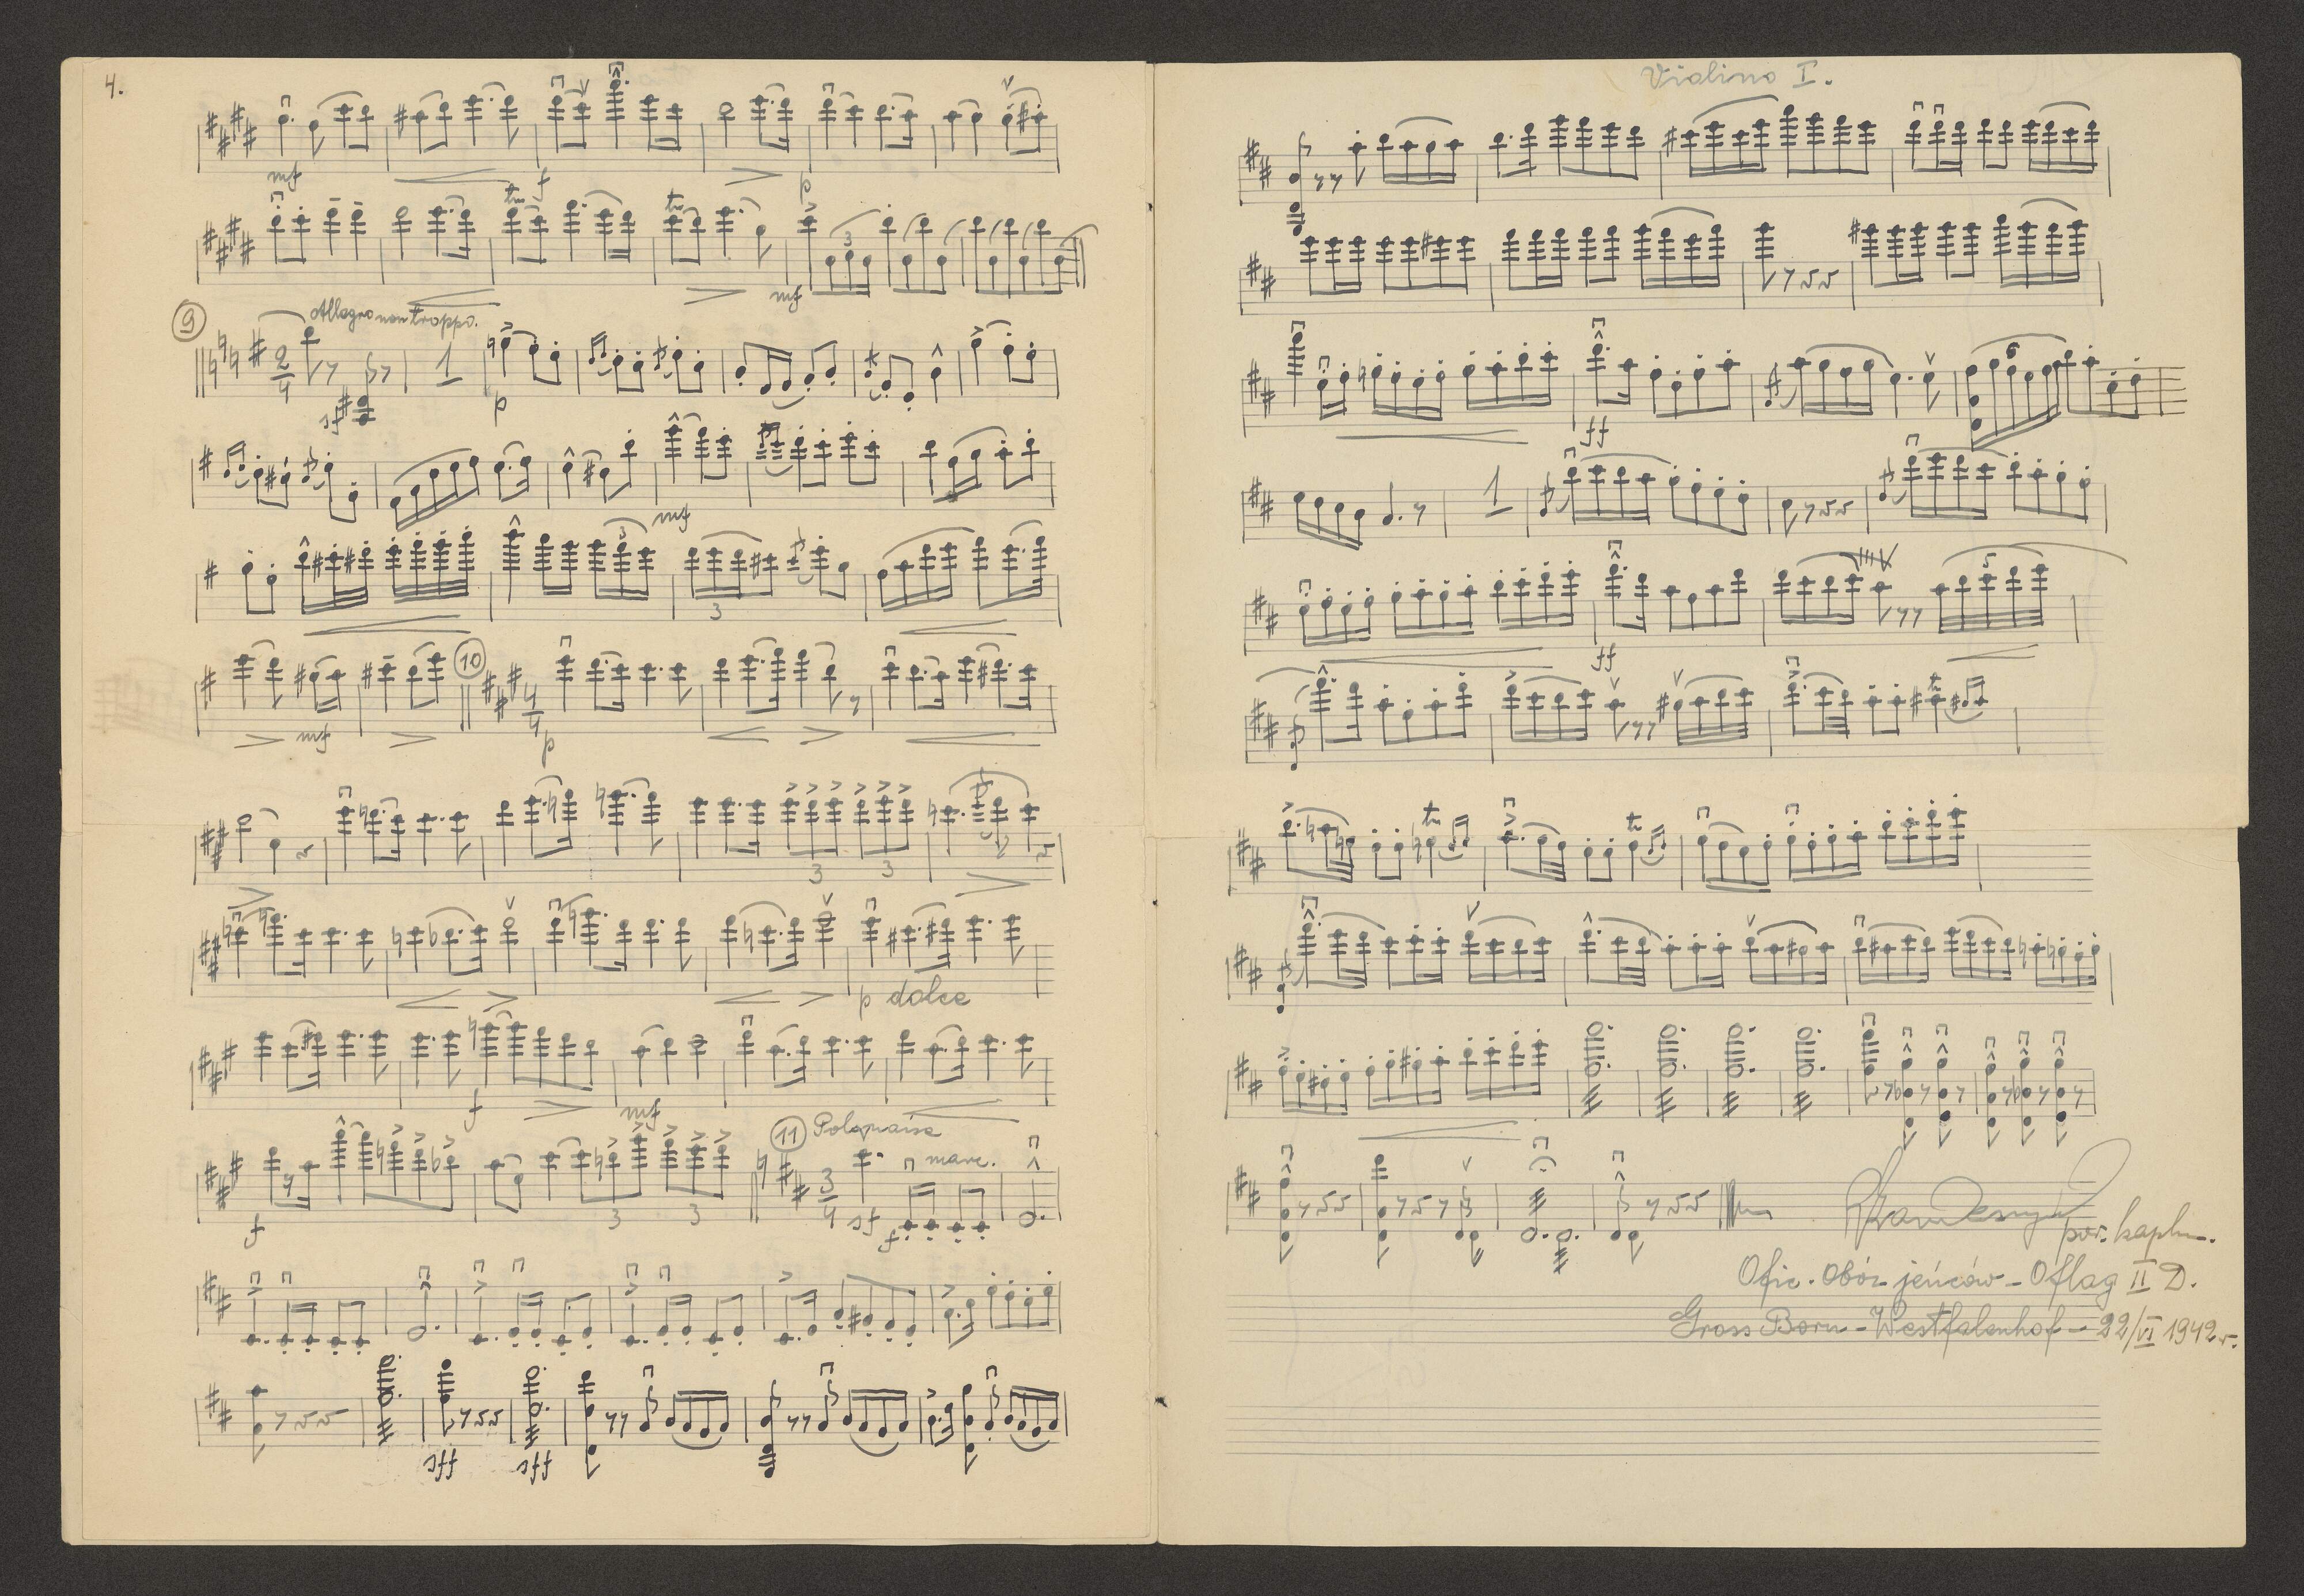 4.
mf f p
tr tr 3 mf
9 Allegro non troppo.
2/4 1
sf p
mf
3 3
10
4/4
mf p
3 3
p dolce
f mf
11 Polonaise
marc.
3/4 sf
f 3 3 f
sff sff
Violino I.
6
ff
1
5
ff
tr
tr tr
por. kapelm.
Ofic. Obóz jeńców - Oflag II D.
Gross Born - Westfalenhof - 22/VI 1942 r.